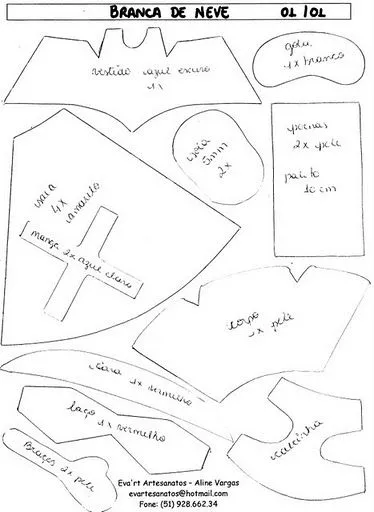 BRANCA DE NEVE 01/01
vestido azul escuro
1x
gola
1x branco
pernas
2x pele
palito
10 cm
5mm
2x
saia
4x
amarelo
manga 2x azul claro
corpo
1x pele
1x vermelho
laço 1x vermelho
calcinha
Braços 2x pele
Eva'rt Artesanatos - Aline Vargas
evartesanatos@hotmail.com
Fone: (51) 928.662.34